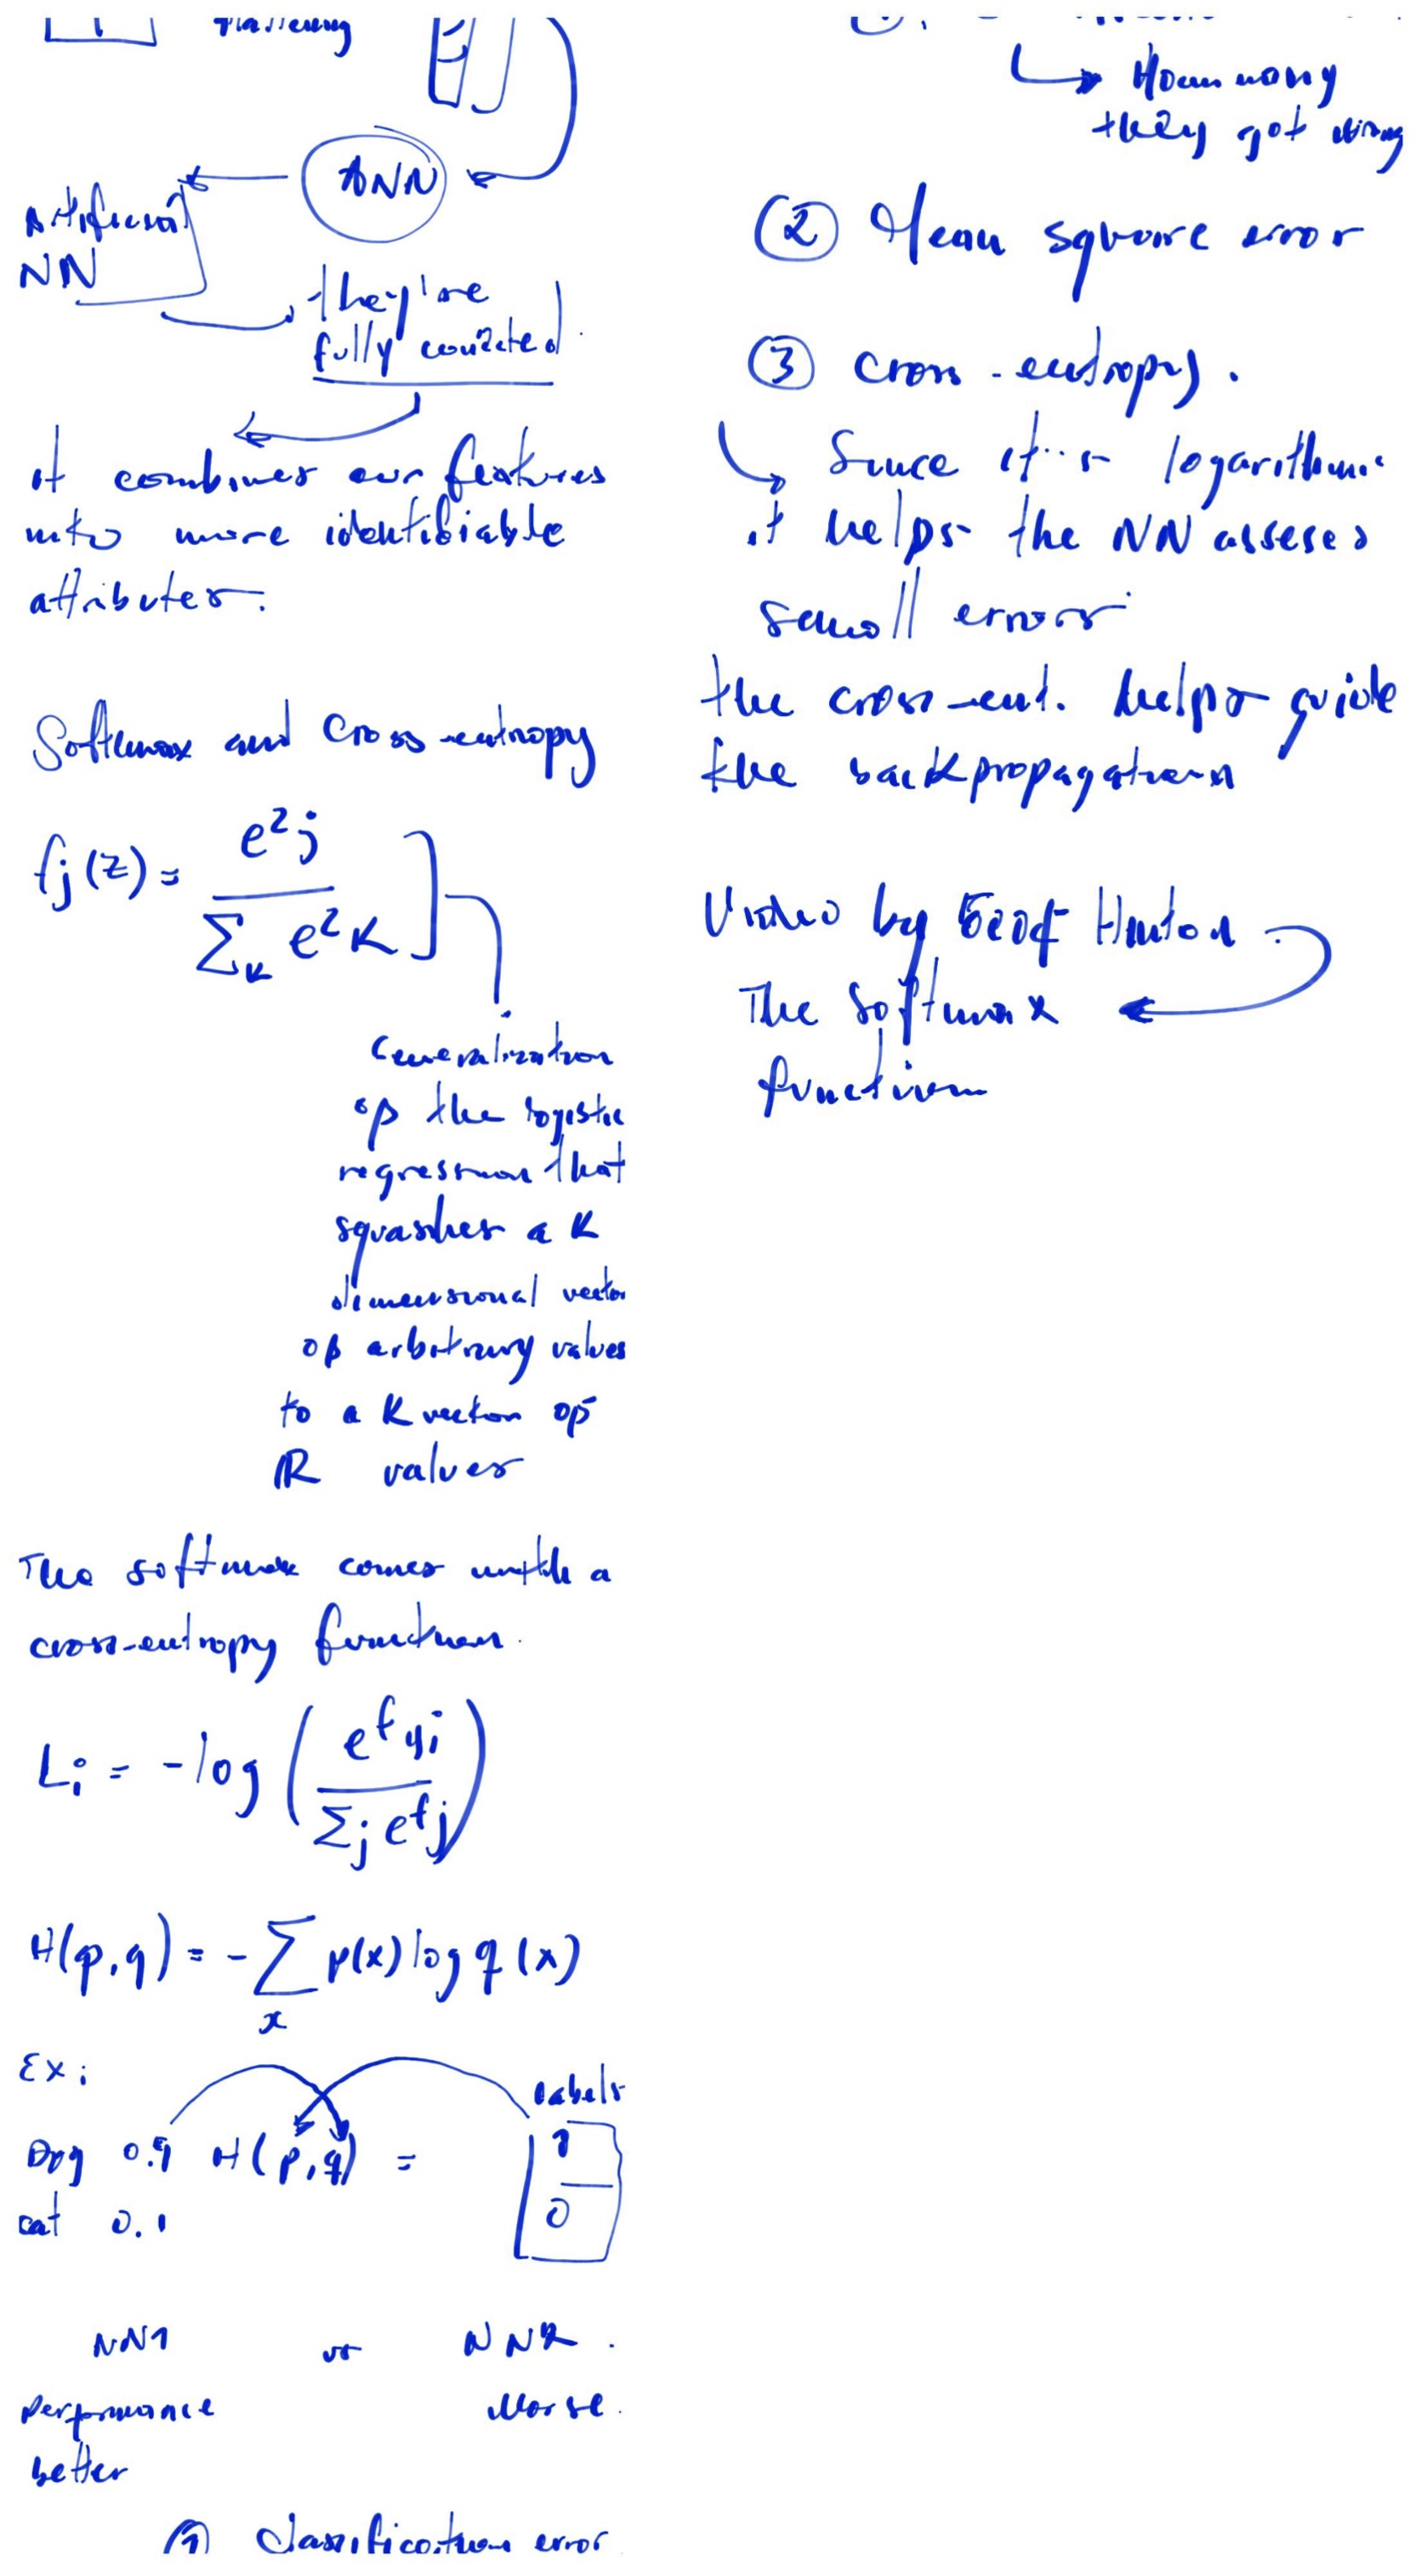 Flattening
ANN
Artificial
NN
they're
fully conected
it combines our features
into more identifiable
attributes.
Softmax and Cross-entropy
fj(z) = e^z j / Σk e^z K
Generalization
of the logistic
regression that
squashes a K
dimensional vector
of arbitrary values
to a K vector of
ℝ values
The softmax comes with a
cross-entropy function.
Li = -log ( e^f yi / Σj e^f j )
H(p,q) = - Σ p(x) log q (x)
x
Ex:
labels
Dog 0.9 H(p,q) = 1
cat 0.1 0
NN1 vs NN2.
Performance Worse.
better
① Classification error
↳ How many
they got wrong
② Mean square error
③ cross-entropy.
Since it's logarithmic
it helps the NN asseses
small errors
the cross-ent. helps guide
the backpropagation
Video by Geof Hinton
The softmax
function